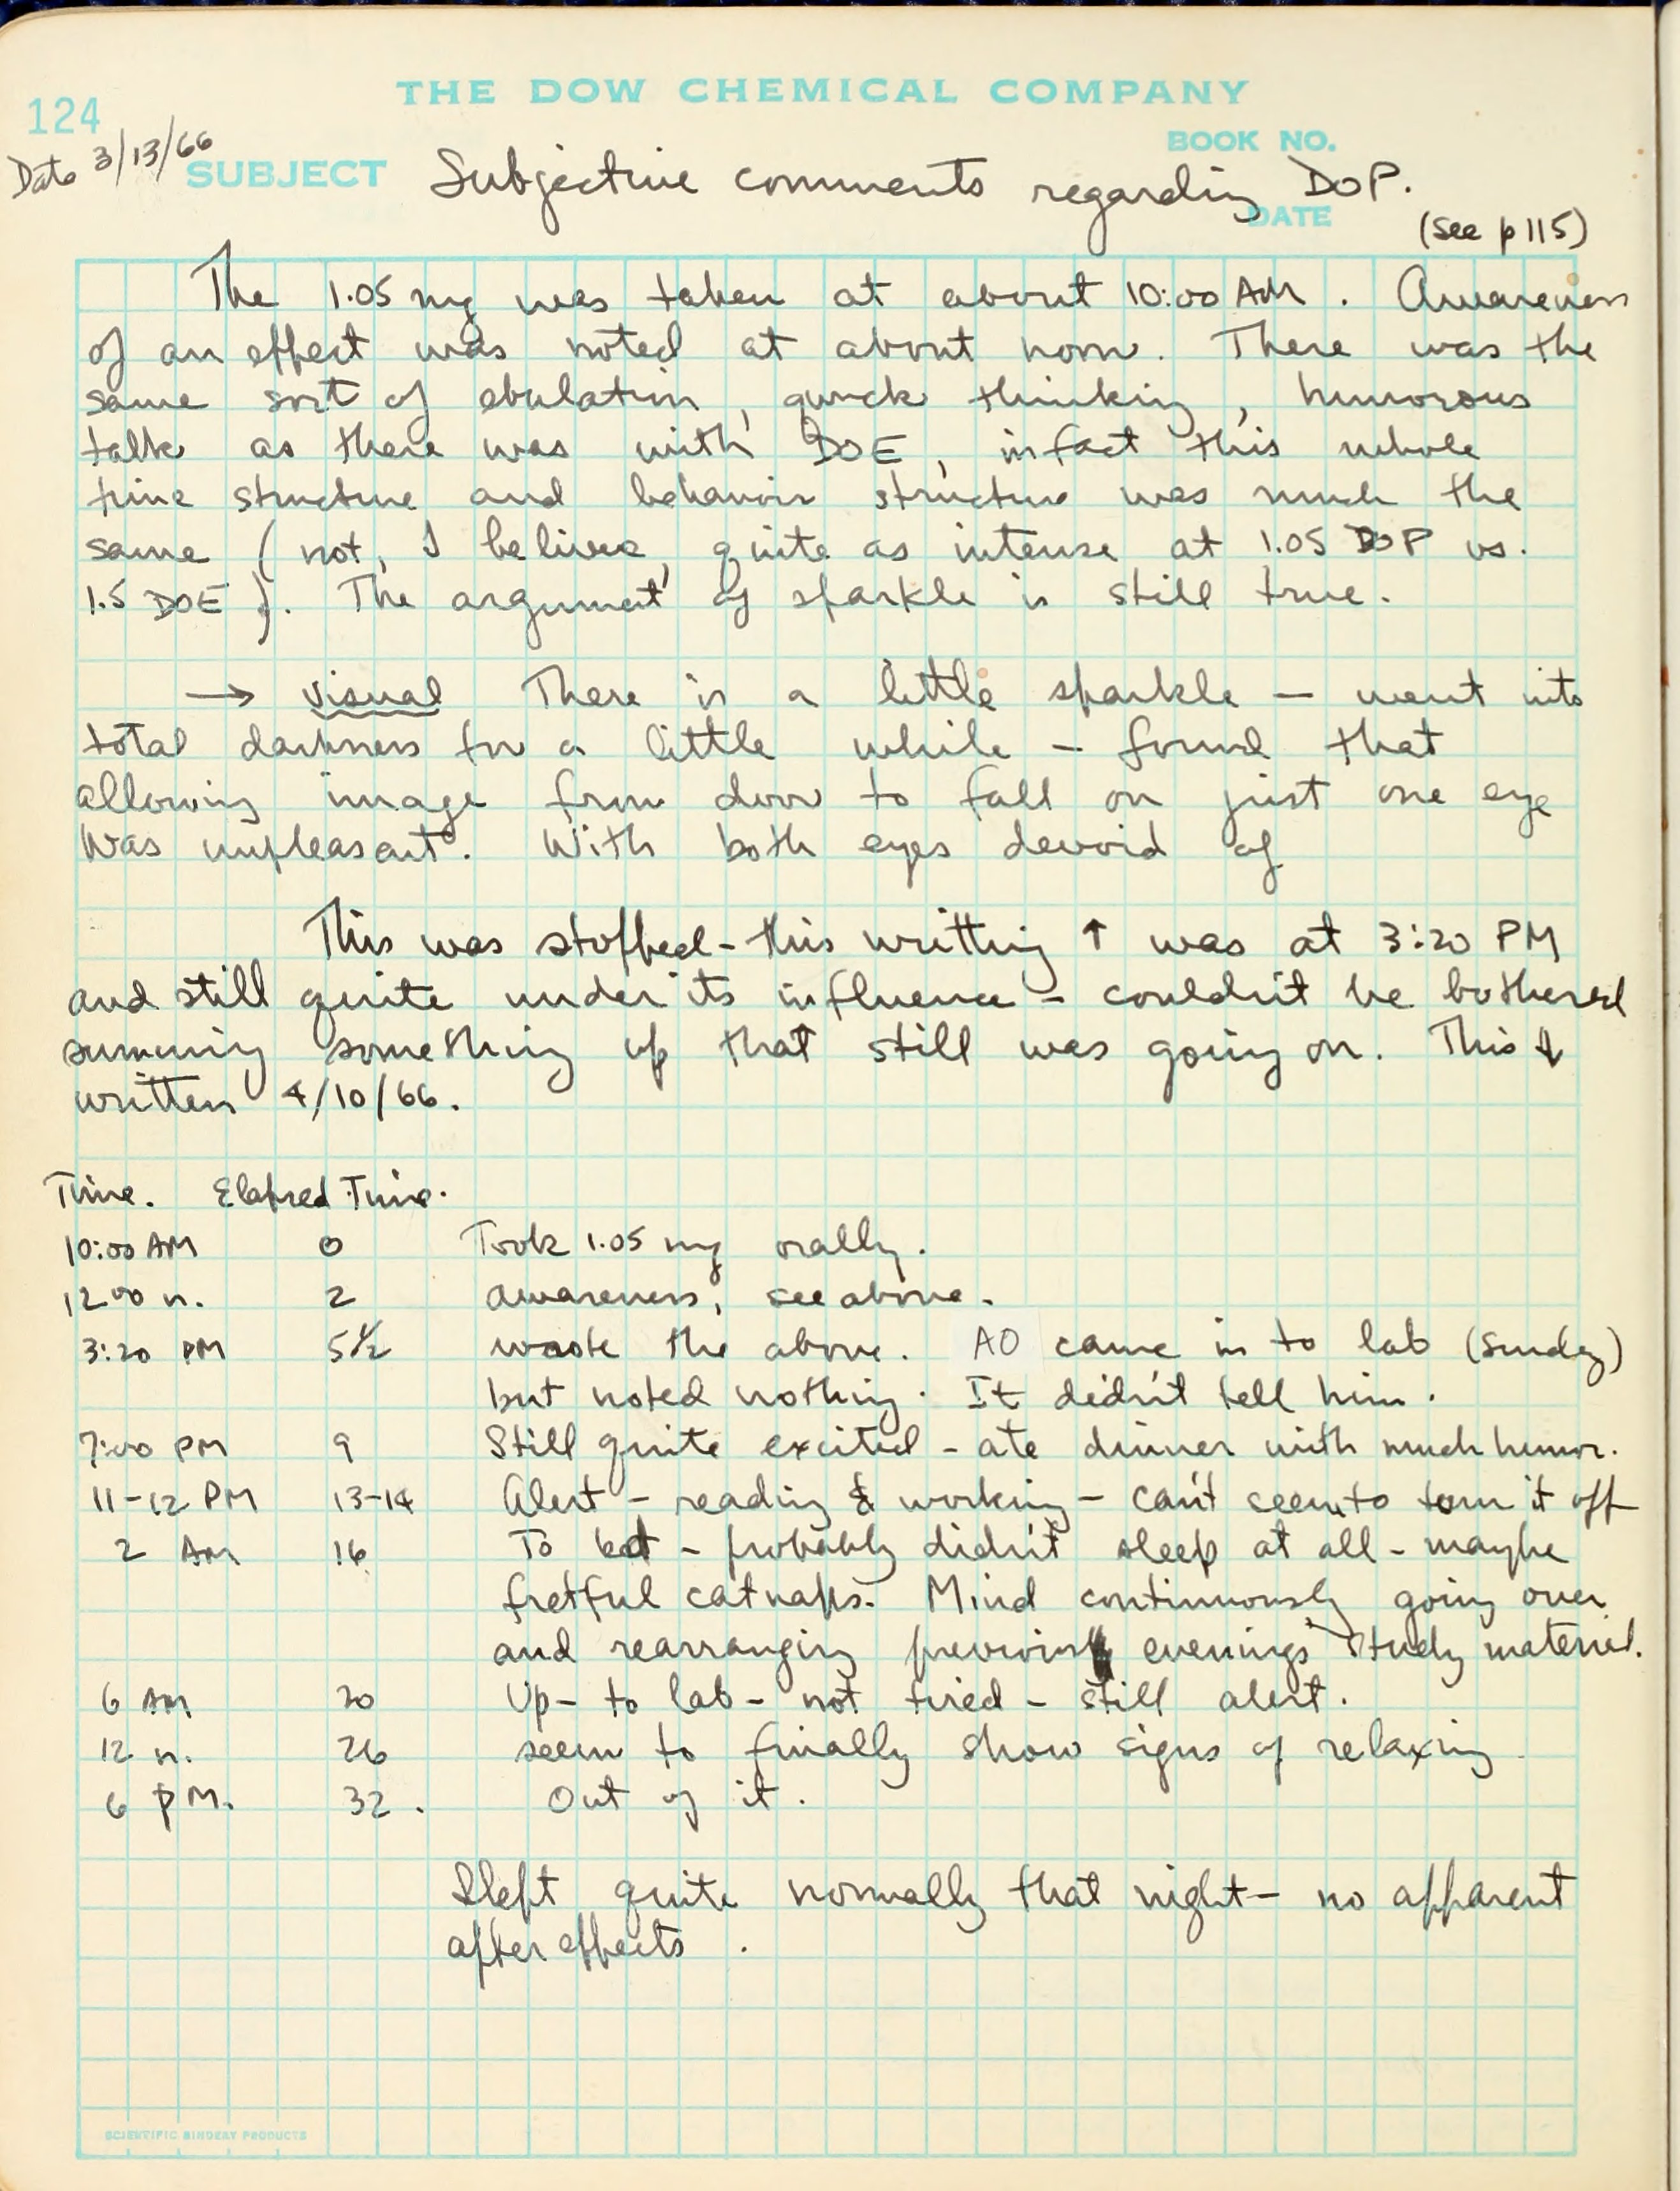 THE DOW CHEMICAL COMPANY
124
BOOK NO.
Date 3/13/66
SUBJECT Subjective comments regarding DOP.
DATE
(see p 115)
The 1.05 mg was taken at about 10:00 AM. Awareness
of an effect was noted at about noon. There was the
same sort of ebulation, quick thinking, humorous
talk as there was with DOE, in fact this whole
time structure and behavior structure was much the
same (not, I believe, quite as intense at 1.05 DOP vs.
1.5 DOE). The argument of sparkle is still true.
→ visual There is a little sparkle — went into
total darkness for a little while — found that
allowing image from door to fall on just one eye
was unpleasant. With both eyes devoid of
This was stopped - this writting ↑ was at 3:20 PM
and still quite under its influence - couldn't be bothered
summing something up that still was going on. This ↓
written 4/10/66.
Time. Elapsed Time.
10:00 AM 0 Took 1.05 mg orally.
12:00 n. 2 awareness, see above.
3:20 PM 5 1/2 wrote the above. AO came in to lab (Sunday)
but noted nothing. I didn't tell him.
7:00 PM 9 Still quite excited - ate dinner with much humor.
11-12 PM 13-14 Alert - reading & working - can't seem to turn it off
2 AM 16 To bed - probably didn't sleep at all - maybe
fretful catnaps. Mind continuously going over
and rearranging previous evenings study material.
6 AM 20 Up - to lab - not tired - still alert.
12 n. 26 seem to finally show signs of relaxing.
6 PM. 32. Out of it.
Slept quite normally that night - no apparent
after effects.
SCIENTIFIC BINDERY PRODUCTS